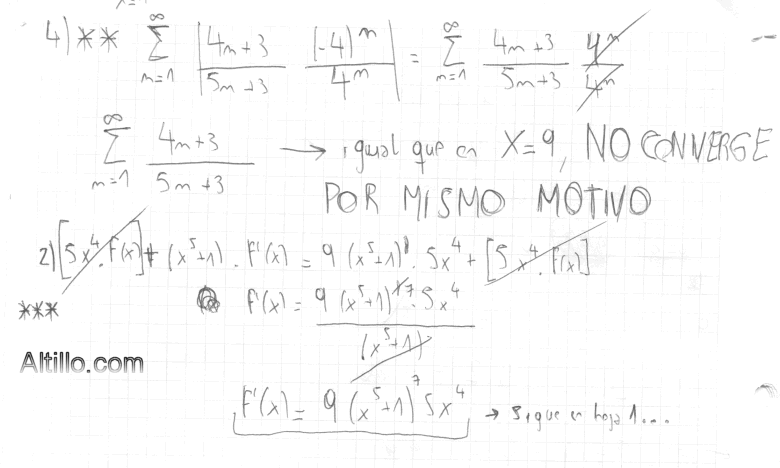 4) ** ∞ Σ n=1 | 4n+3 / 5n+3 (-4)^n / 4^n | = ∞ Σ n=1 4n+3 / 5n+3 4^n / 4^n
∞ Σ n=1 4n+3 / 5n+3 → igual que en X=9, NO CONVERGE
POR MISMO MOTIVO
2) [5x^4 . f(x)] + (x^5+1) . f'(x) = 9 (x^5+1)^8 . 5x^4 + [5x^4 . f(x)]
*** f'(x) = 9 (x^5+1)^8 7 . 5x^4 / (x^5+1)
Altillo.com
f'(x) = 9 (x^5+1)^7 5x^4 → sigue en hoja 1...